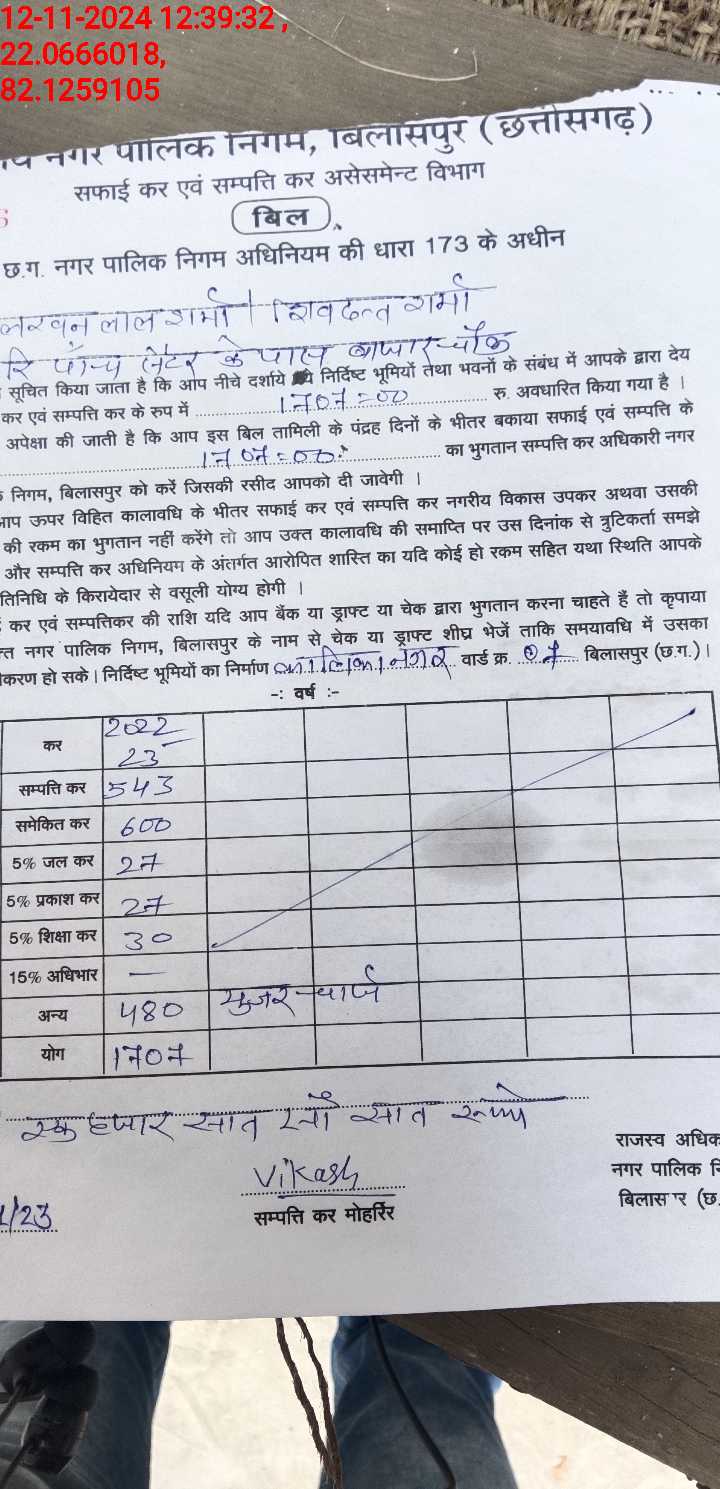 12-11-2024 12:39:32 ,
22.0666018,
82.1259105
नगर पालिक निगम, बिलासपुर (छत्तीसगढ़)
सफाई कर एवं सम्पत्ति कर असेसमेन्ट विभाग
बिल
छ.ग. नगर पालिक निगम अधिनियम की धारा 173 के अधीन
लखन लाल शर्मा / शिवदत्त शर्मा
के पास बाजार चौक
सूचित किया जाता है कि आप नीचे दर्शाये निर्दिष्ट भूमियों तथा भवनों के संबंध में आपके द्वारा देय
कर एवं सम्पत्ति कर के रुप में 1707=00 रु. अवधारित किया गया है ।
अपेक्षा की जाती है कि आप इस बिल तामिली के पंद्रह दिनों के भीतर बकाया सफाई एवं सम्पत्ति के
1707=00 का भुगतान सम्पत्ति कर अधिकारी नगर
निगम, बिलासपुर को करें जिसकी रसीद आपको दी जावेगी ।
आप ऊपर विहित कालावधि के भीतर सफाई कर एवं सम्पत्ति कर नगरीय विकास उपकर अथवा उसकी
की रकम का भुगतान नहीं करेंगे तो आप उक्त कालावधि की समाप्ति पर उस दिनांक से त्रुटिकर्ता समझे
और सम्पत्ति कर अधिनियम के अंतर्गत आरोपित शास्ति का यदि कोई हो रकम सहित यथा स्थिति आपके
तिनिधि के किरायेदार से वसूली योग्य होगी ।
कर एवं सम्पत्तिकर की राशि यदि आप बैंक या ड्राफ्ट या चेक द्वारा भुगतान करना चाहते हैं तो कृपाया
नगर पालिक निगम, बिलासपुर के नाम से चेक या ड्राफ्ट शीघ्र भेजें ताकि समयावधि में उसका
करण हो सके। निर्दिष्ट भूमियों का निर्माण कालिका नगर वार्ड क्र. 07 बिलासपुर (छ.ग.)।
-: वर्ष :-
कर 2022 23
सम्पत्ति कर 543
समेकित कर 600
5% जल कर 27
5% प्रकाश कर 27
5% शिक्षा कर 30
15% अधिभार —
अन्य 480 युजर चार्ज
योग 1707
एक हजार सात सौ सात रूपये
Vikash
सम्पत्ति कर मोहर्रिर
/23
राजस्व अधिक
नगर पालिक नि
बिलास र (छ.